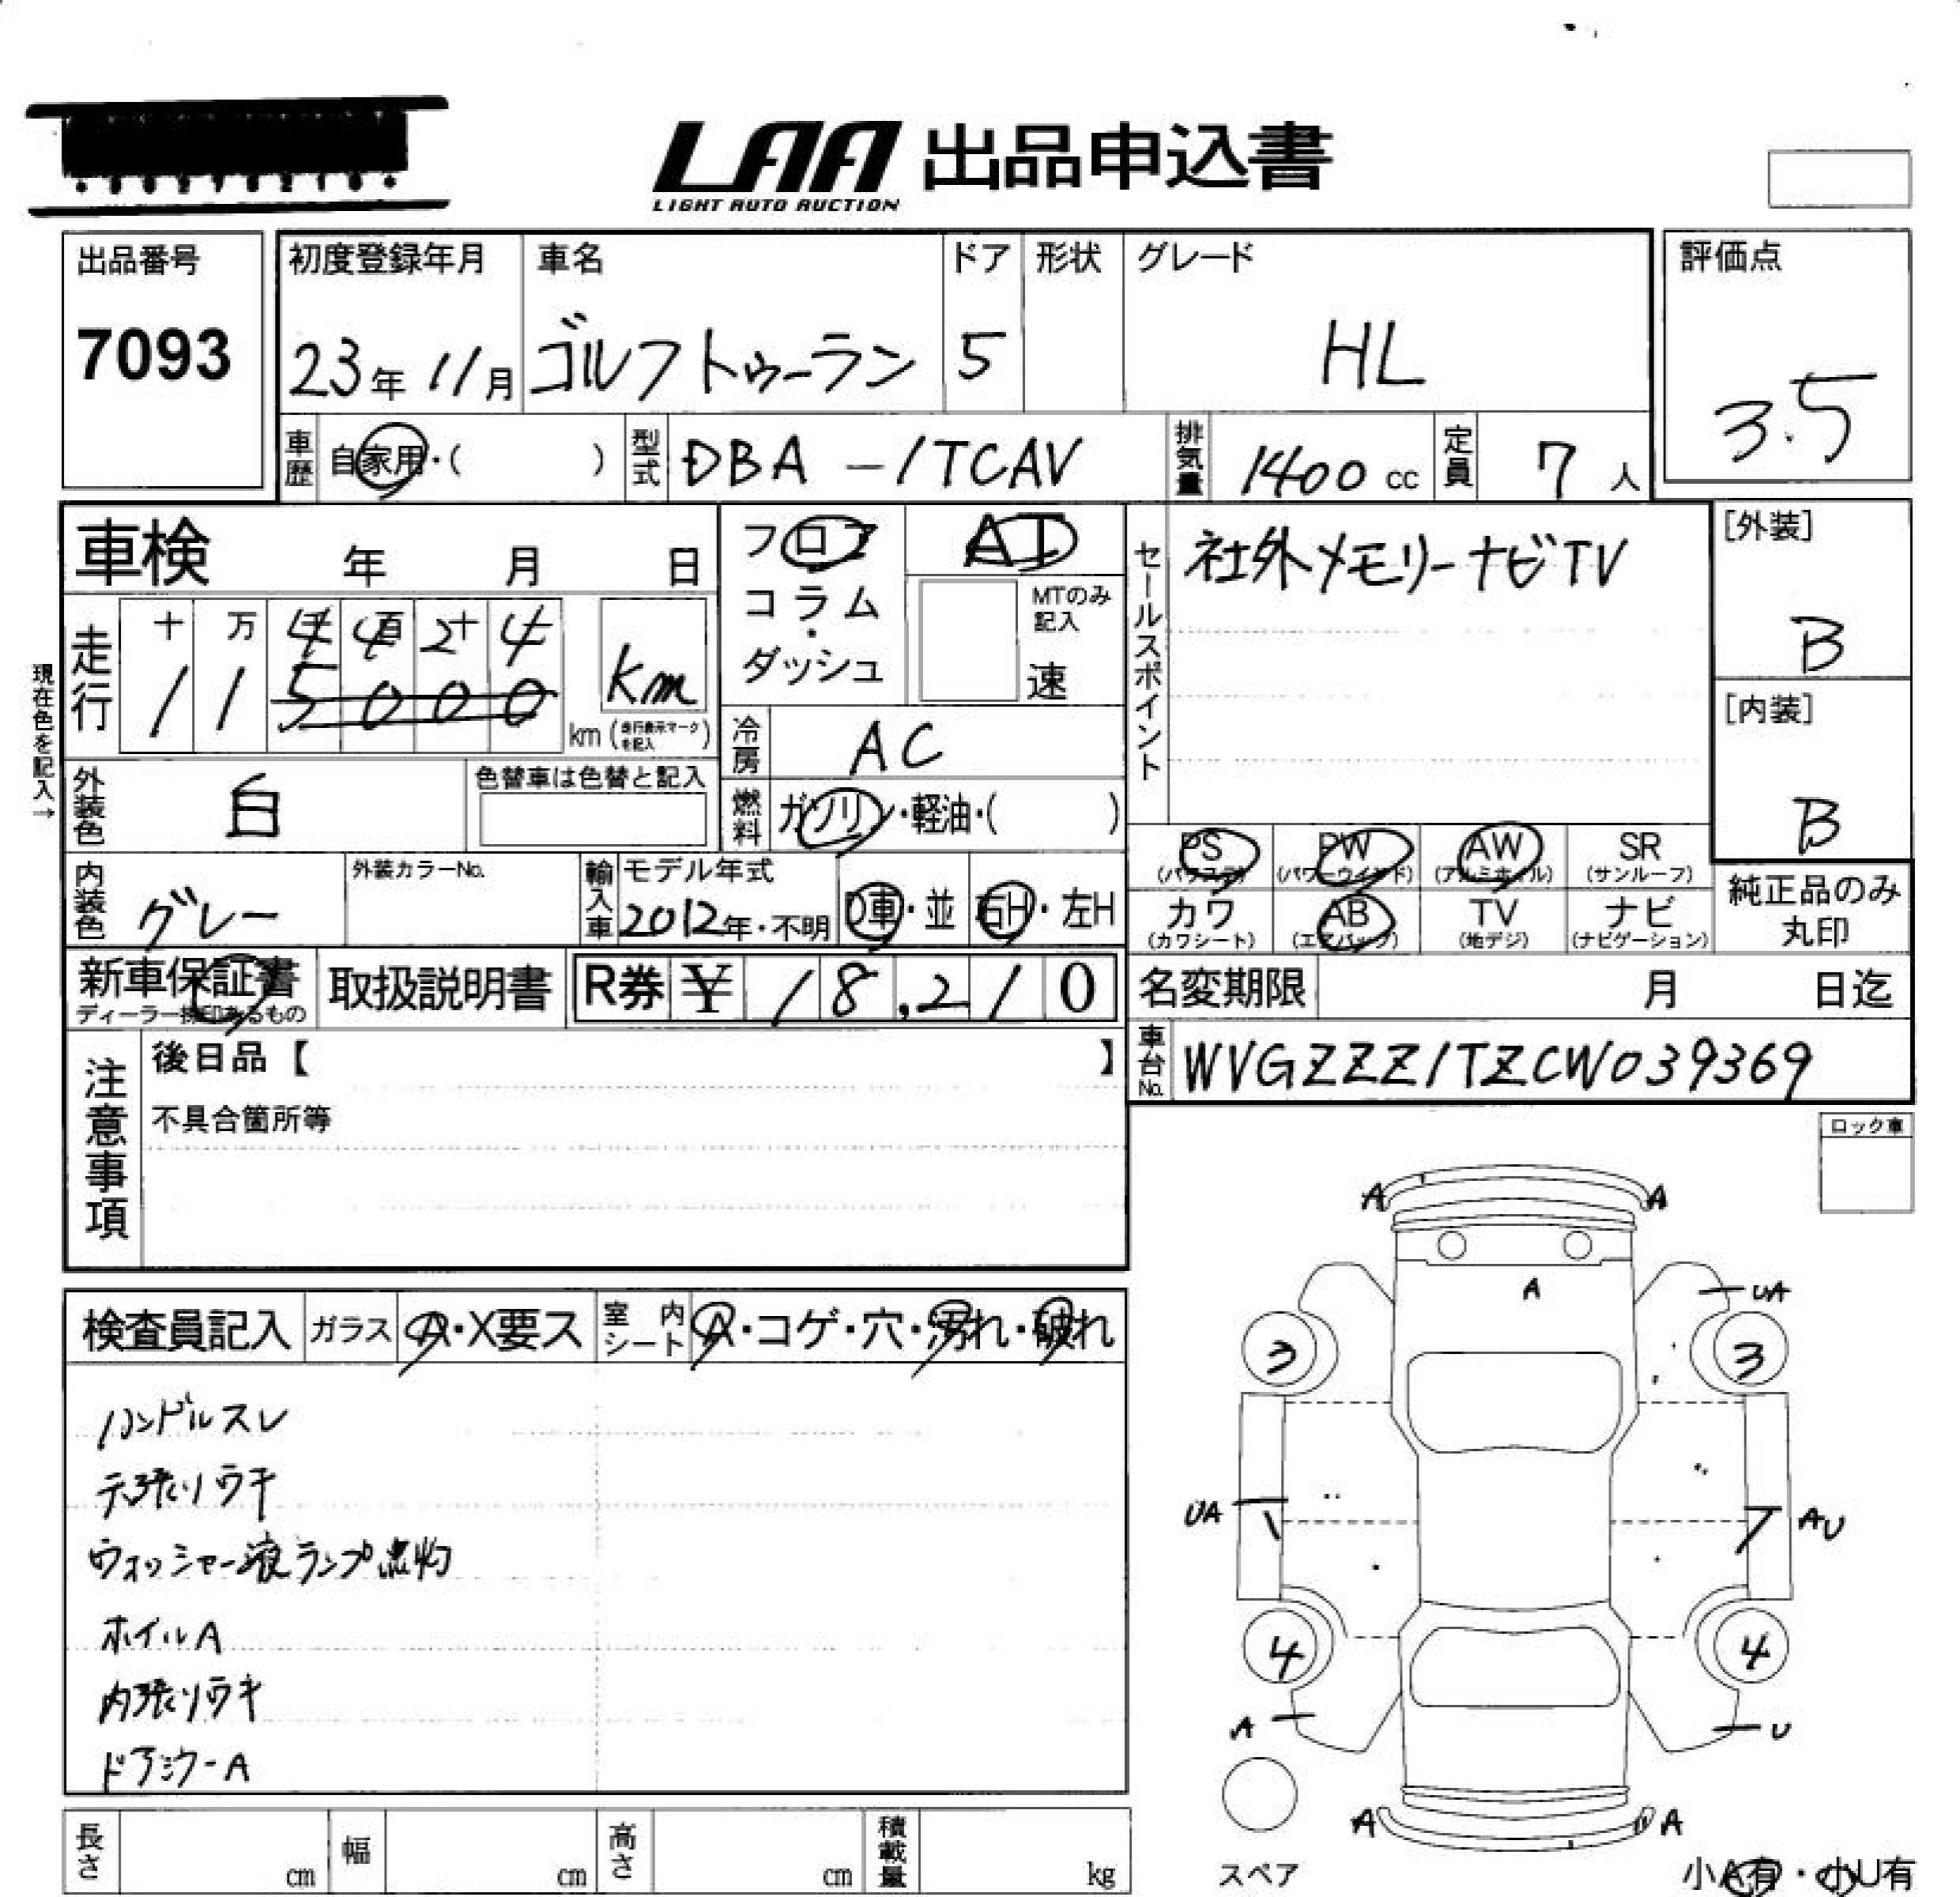 LAA 出品申込書
LIGHT AUTO AUCTION
出品番号
7093
初度登録年月
23年 11月
車名
ゴルフトゥーラン
ドア
5
形状
グレード
HL
評価点
3.5
車歴
自家用・( )
型式
DBA-1TCAV
排気量
1400 cc
定員
7 人
車検 年 月 日
フロア
コラム
・
ダッシュ
AT
MTのみ
記入
速
セールスポイント
社外メモリーナビTV
[外装]
B
[内装]
B
現在色を記入→
走行
十 万 千 百 十
4 4 2 4
1 1 5 0 0 0
km
km (走行表示マークを記入)
冷房
AC
外装色
白
色替車は色替と記入
燃料
ガソリン・軽油・( )
PS
(パワステ)
PW
(パワーウインド)
AW
(アルミホイル)
SR
(サンルーフ)
内装色
グレー
外装カラーNo.
輸入車
モデル年式
2012年・不明
D車・並
右H・左H
カワ
(カワシート)
AB
(エアバッグ)
TV
(地デジ)
ナビ
(ナビゲーション)
純正品のみ
丸印
新車保証書
ディーラー捺印あるもの
取扱説明書
R券 ¥ 18,210
名変期限 月 日迄
車台No.
WVGZZZ1TZCW039369
注意事項
後日品【 】
不具合箇所等
ロック車
検査員記入
ガラス
A・X要ス
室内シート
A・コゲ・穴・汚れ・破れ
ハンドルスレ
天張りウキ
ウォッシャー液ランプ点灼
ホイルA
内張りウキ
ドアミラーA
A A
A
UA
3 3
UA AU
4 4
A U
A A
スペア
小A有・小U有
長さ cm
幅 cm
高さ cm
積載量 kg